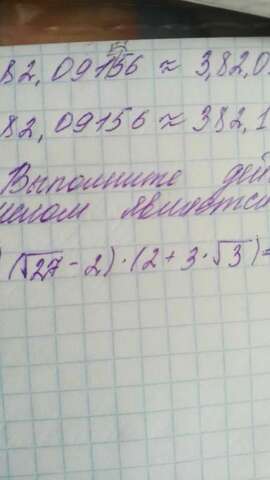 82,09156 ≈ 3,82,0
82,09156 ≈ 382,1
Выполните дей
числом является
(√27 - 2) · (2 + 3 · √3) =